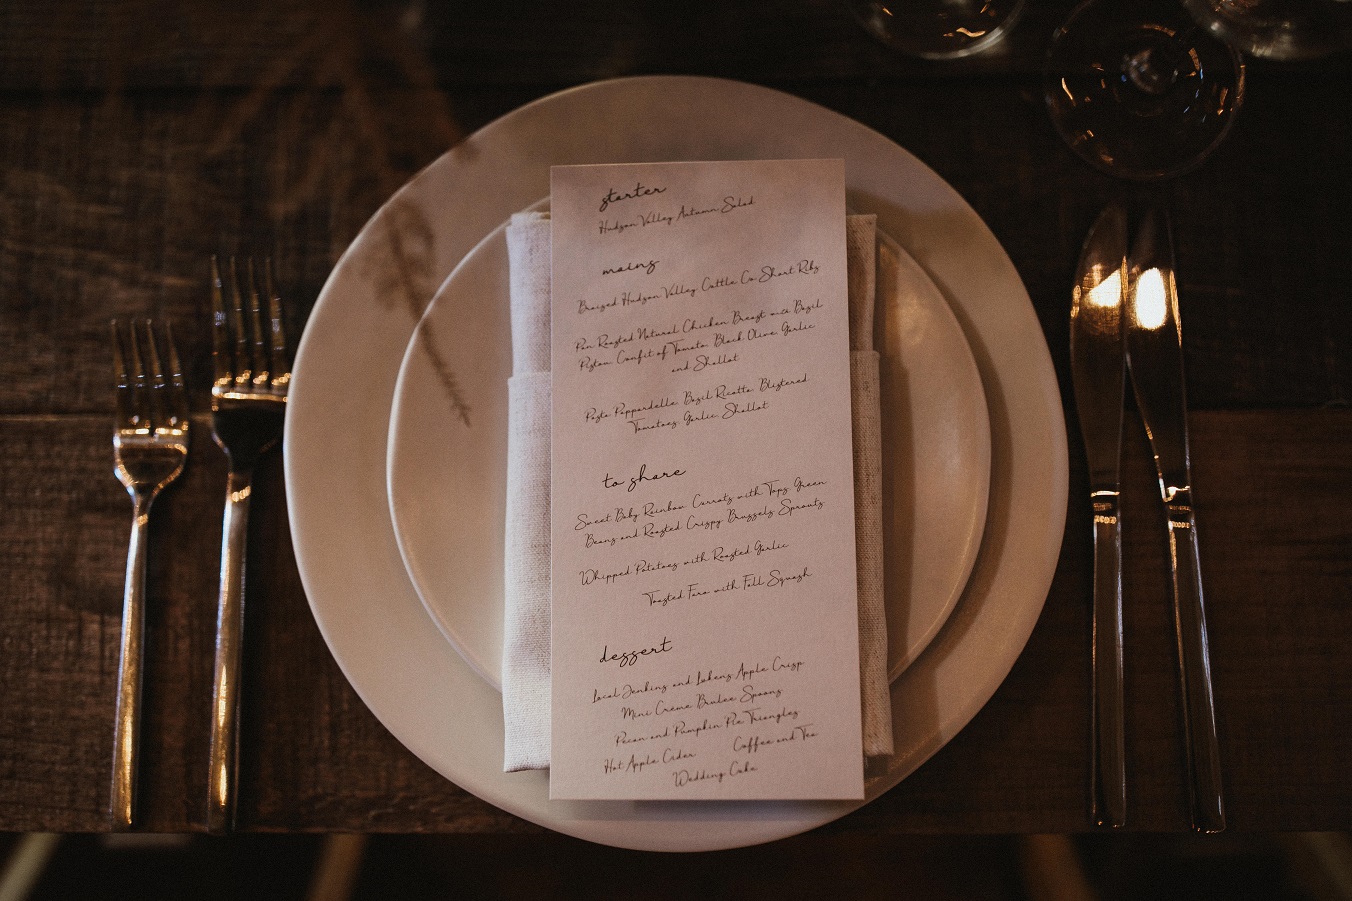 starter
Hudson Valley Autumn Salad
mains
Braised Hudson Valley Cattle Co. Short Ribs
Pan Roasted Natural Chicken Breast with Basil
Pistou, Confit of Tomato, Black Olive, Garlic
and Shallot
Pasta Pappardella, Basil Ricotta, Blistered
Tomatoes, Garlic, Shallot
to share
Sweet Baby Rainbow Carrots with Tops, Green
Beans and Roasted Crispy Brussels Sprouts
Whipped Potatoes with Roasted Garlic
Toasted Faro with Fall Squash
dessert
Local Jenkins and Lukens Apple Crisp
Mini Creme Brulee Spoons
Pecan and Pumpkin Pie Triangles
Hot Apple Cider Coffee and Tea
Wedding Cake